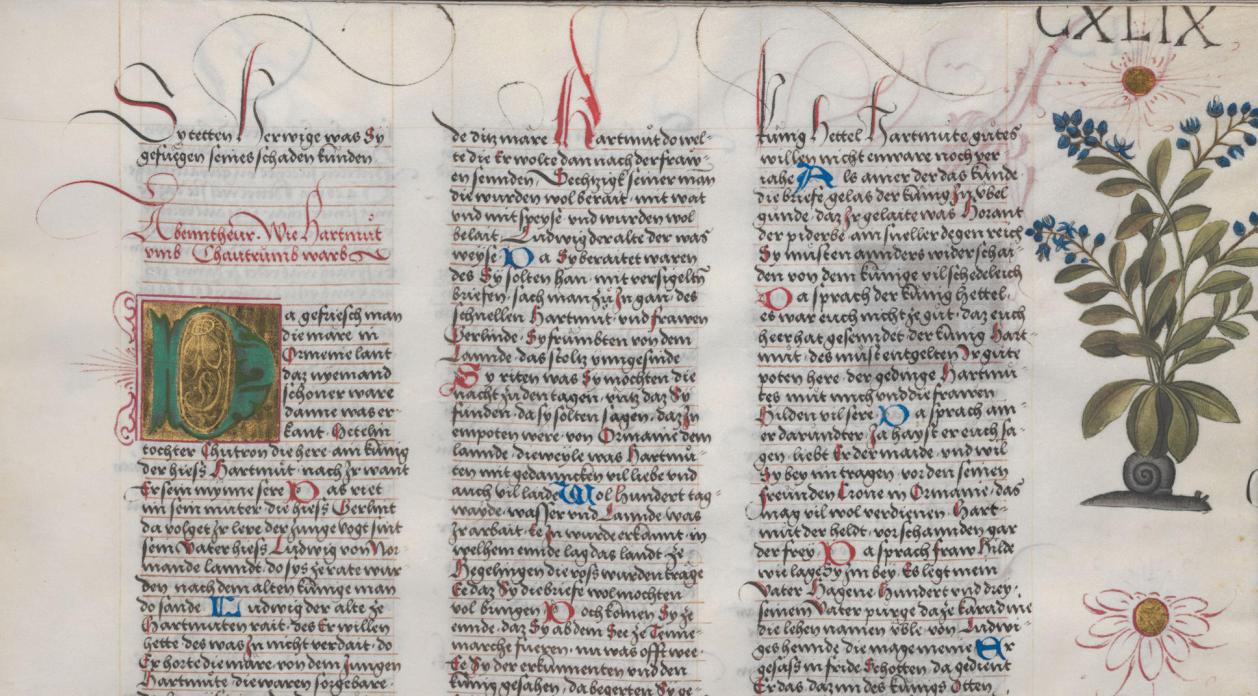 CXLIX
Sy tetten Herwige was Sy
gefuegen seines schaden kunden
Abentheur. Wie Hartmut
umb Chautrumb warb
Da gefriesch man
die märe in
Ormenie lant
daz nyemand
schöner wäre
danne was er-
kant. Hetelin
tochter Chutron die here am kunig
der hiess Hartmut. nach Ir want
Er sein mynne sere Das riet
im sein muter die hiess Gerlint
da volget Ir lere der Junge vogt sint
sein Vater hiess Ludwig von Nor-
mande lanndt. do sys ze rate war-
den nach dem alten kunige man
do sande Ludwig der alte ze
Hartmuten rait. des Er willen
hette des was In nicht verdait. do
Er horte die märe. von dem Jungen
Hartmute die waren sorgebäre.
de ditz märe Hartmut do wel-
te die Er wolte dan nach der fraw-
en sennden. Sechtzigk seiner man
die wurden wol berait. mit wat
und mit speyse und wurden wol
belait. Ludwig der alte der was
weyse Da Sy beraitet waren
des Sy solten han. mit versigeltn
briefen. sach man zu In gan. des
schnellen Hartmut. und frawen
Gerlinde. Sy frumbten von dem
Lannde das stoltz ynngesinde
Sy riten was Sy mochten die
nacht zu den tagen. untz daz Sy
funden. da sy solten sagen. daz In
empoten were. von Ormanie dem
lannde. die weyle was Hartmu-
ten mit gedancken vil liebe und
auch vil laide Wol hundert tag-
wayde. wasser und Lannde was
Ir arbait. Ee In wurde erkannt. in
welhem ennde lag das landt. ze
Hegelingen die ross wurden träge
Ee daz Sy die briefe wol mochten
vol bringen Doch komen Sy ze
ennde. daz Sy ab dem See ze Tenne-
marche fueren. nu was offt wee.
Ee Sy der erkunnenten und den
kunig gesahen. da begerten Sy ge-
kunig Hettel Hartmutes gutes
willen nicht enwäre noch ver-
nahe Als aus er der das kunde
die briefe gelas. der kunig In ubel
gunde. daz Ir gelaite was Horant
der piderbe. am sneller degen reich
Sy musten annders widerschai-
den von dem kunige vil schedeleich
Da sprach der kunig Hettel.
es war euch nicht ze gut. daz euch
heer hat gesenndet. der kunig Hart-
mut. des muest entgelten Ir gute
poten here. der gedinge Hartmu-
tes mut mich und die frawen
Hilden vil sere Da sprach ain-
er darundter. Ja haysst er euch sa-
gen. liebt Er der maide. und wil
Sy bey im tragen. vor den seinen
freunden Crone in Ormanie. das
mag vil wol verdienen. Hart-
mut der heldt. vor schannden gar
der frey Da sprach fraw Hilde
wie läge Sy Im bey. Es legt mein
Vater Hagene. Hundert und drey.
seinem Vater purge da ze karadine
die lehen namen ubele. von Ludwi-
ges hennde die mage meine Er
gesass in fride Schotten. da gedient
Er das. daz im des kunigs Otten